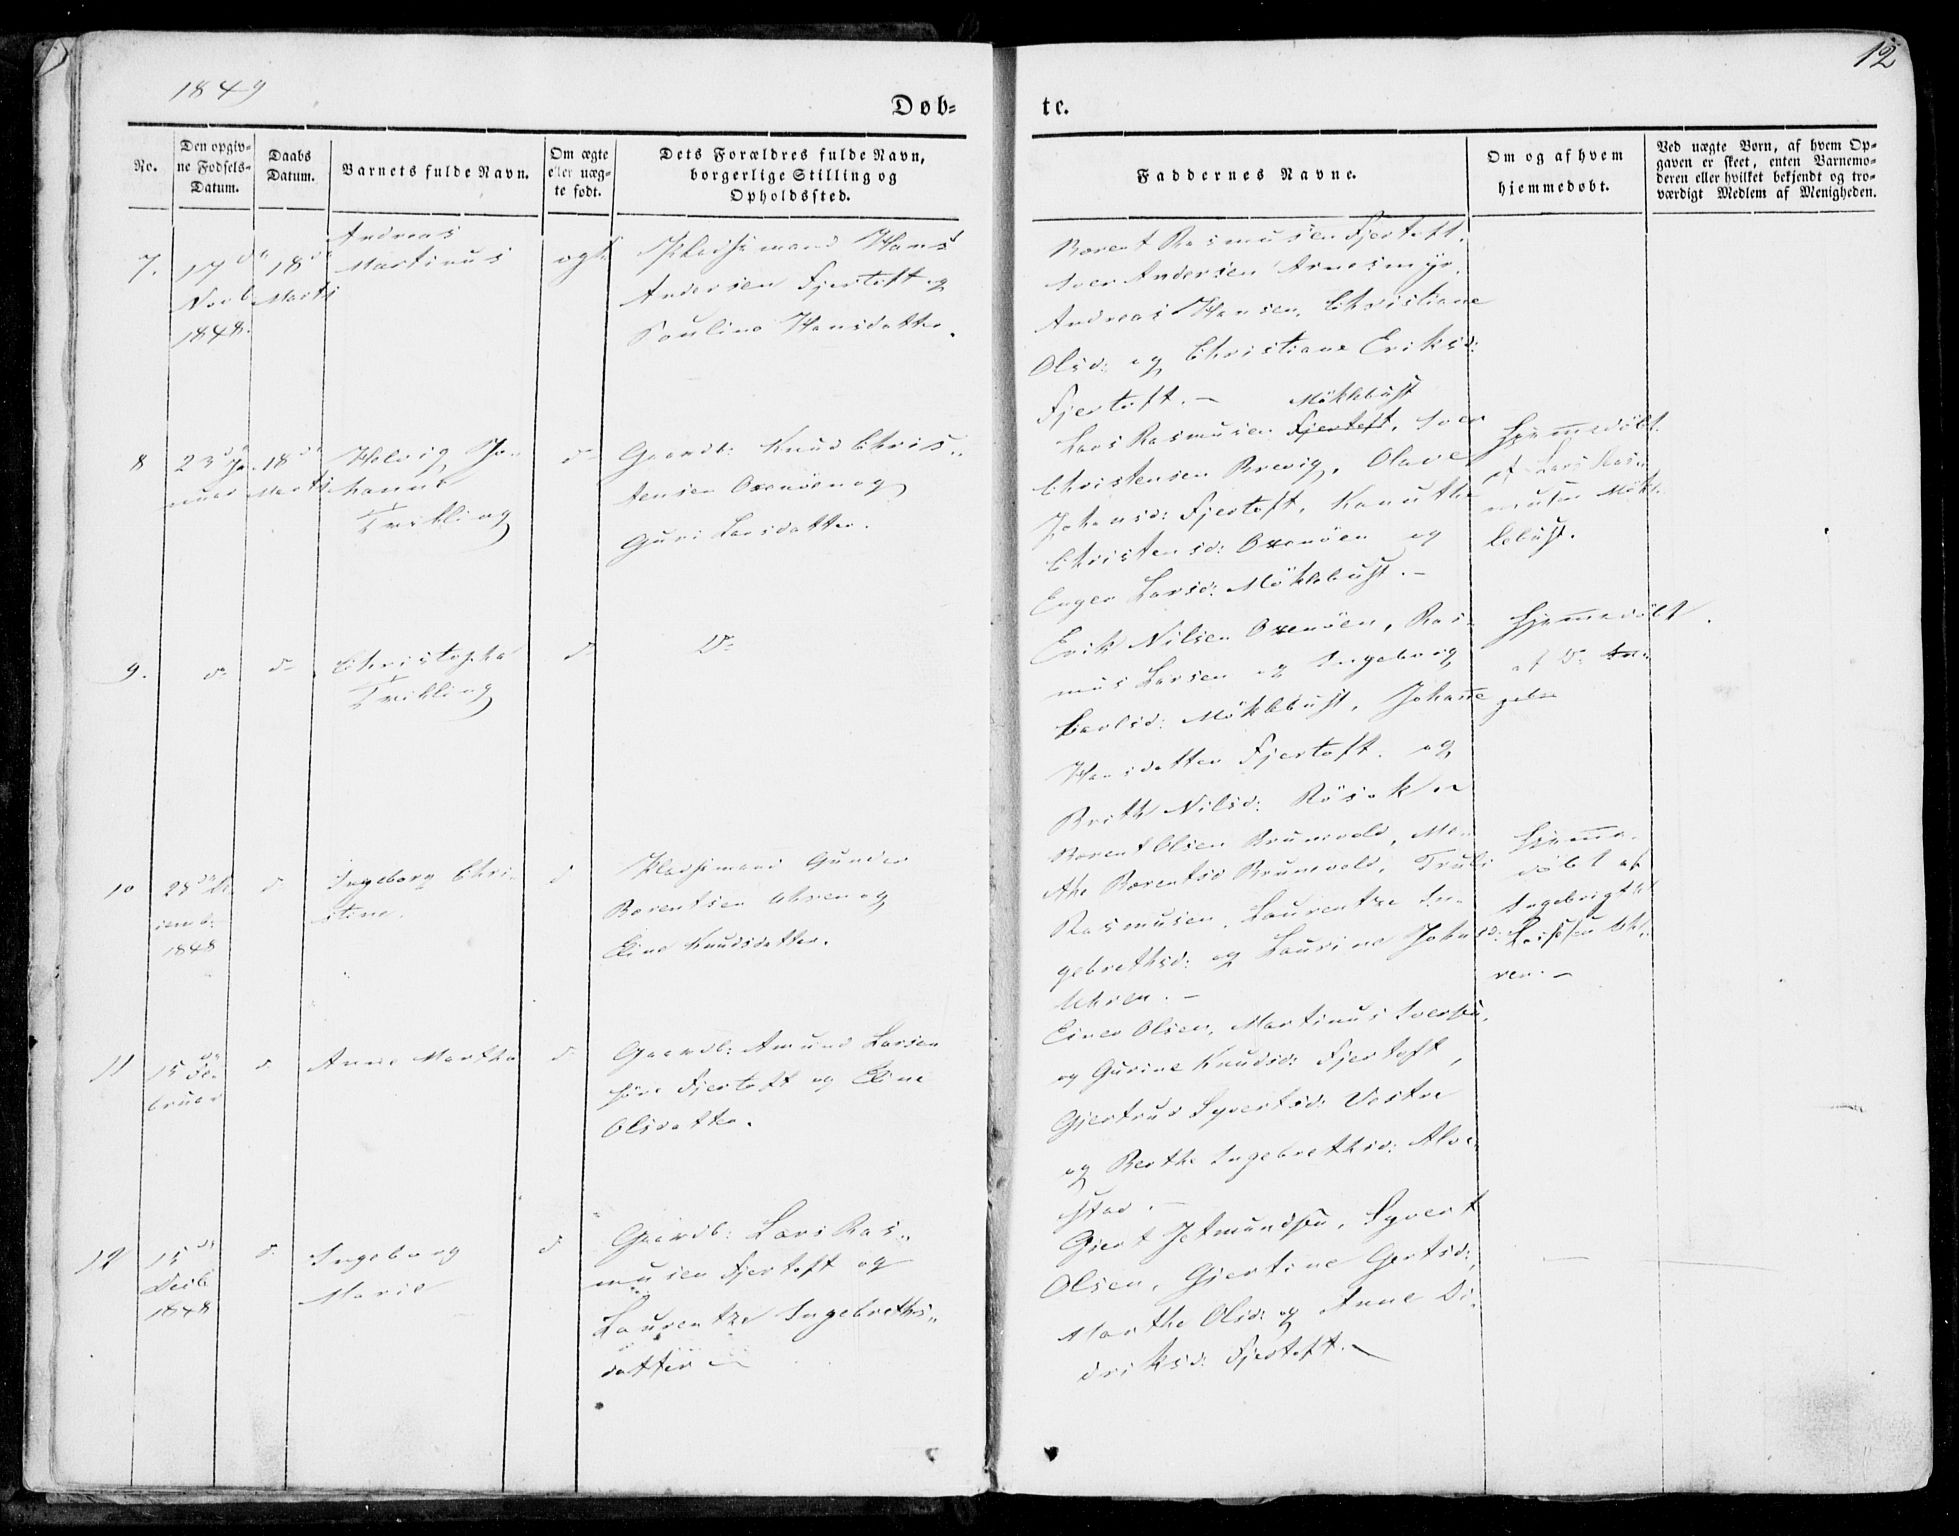 1849
12
Døb=
te.
No.
Den opgiv=
ne Fødsels=
Datum.
Daabs
Datum.
Barnets fulde Navn.
Om ægte
eller uæg=
te født.
Dets Forældres fulde Navn,
borgerlige Stilling og
Opholdssted.
Faddernes Navne.
Om og af hvem
hjemmedøbt.
Ved uægte Børn, af hvem Op=
gaven er skeet, enten Barnemo=
deren eller hvilket bekjendt og tro=
værdigt Medlem af Menigheden.
7.
17de
Novb
1848.
18de
Marts
Andreas
Martinus
ægt.
Pladsmand Hans
Andersen Fjertoft og
Pauline Hansdatter.
Berent Rasmusen Fjertoft,
Iver Andersen Arnesmyr,
Andreas Hansen, Christiane
Olsd: og Christiane Eriksd:
Fjertoft. -
8
23de Ja-
nuar
18de
Marts
Helvig Jo-
hanne
Tvilling
do
Gaardb: Knud Chris-
tensen Oxenöen og
Guri Larsdatter.
Möklebust
Lars Rasmusen Fjertoft, Iver
Christensen Brevig, Olave
Johansd: Fjertoft, Kanutte
Christensd: Oxenöen og
Inger Larsd: Möklebust. -
Hjemmedöbt
af Lars Ras-
musen Mök-
lebust.
9.
do
do
Christopha
Tvilling
do
Do
Erik Nilsen Oxenöen, Ras-
mus Larsen og Ingeborg
Carlsd: Möklebust, Johanne
Hansdatter Fjertoft og
Brith Nilsd: Rösok
Hjemmedöbt
af Do
10
28de De-
cemb:
1848
do
Ingeborg Chri-
stine.
do
Pladsmand Gunder
Berentsen Uhren og
Eline Knudsdatter.
Berent Olsen Brunvold, Ma-
the Berentsd Brunvold, Truls
Rasmusen, Laurentze In-
gebrethsd: og Laurine Johnsd:
Uhren. -
Hjemme-
döbt af
Ingebrigt
Larssen Uh-
ren. -
11
15de Fe-
bruar
do
Anne Martha
do
Gaardb: Amund Larsen
Fjertoft og Eline
Olsdatter.
Einer Olsen, Martinus Iverssen,
og Gurine Knudsd: Fjertoft,
Gjertrud Syvertsd: Vestre
og Berthe Ingebrethsd: Alve-
stad. -
12
15de
Decb
1848
do
Ingeborg
Marie
do
Gaardb: Lars Ras-
musen Fjertoft og
Laurentze Ingebreths-
datter
Gjert Jetmundssen, Syvert
Olsen, Gjertine Gjertsd:,
Marthe Olsd: og Anne Di-
driksd: Fjertoft. -